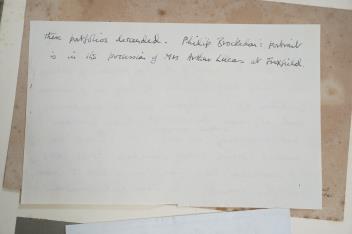 these portfolios descended. Philip Brockedon: portrait
is in the possession of Mrs Arthur Lucas at Foxfield.